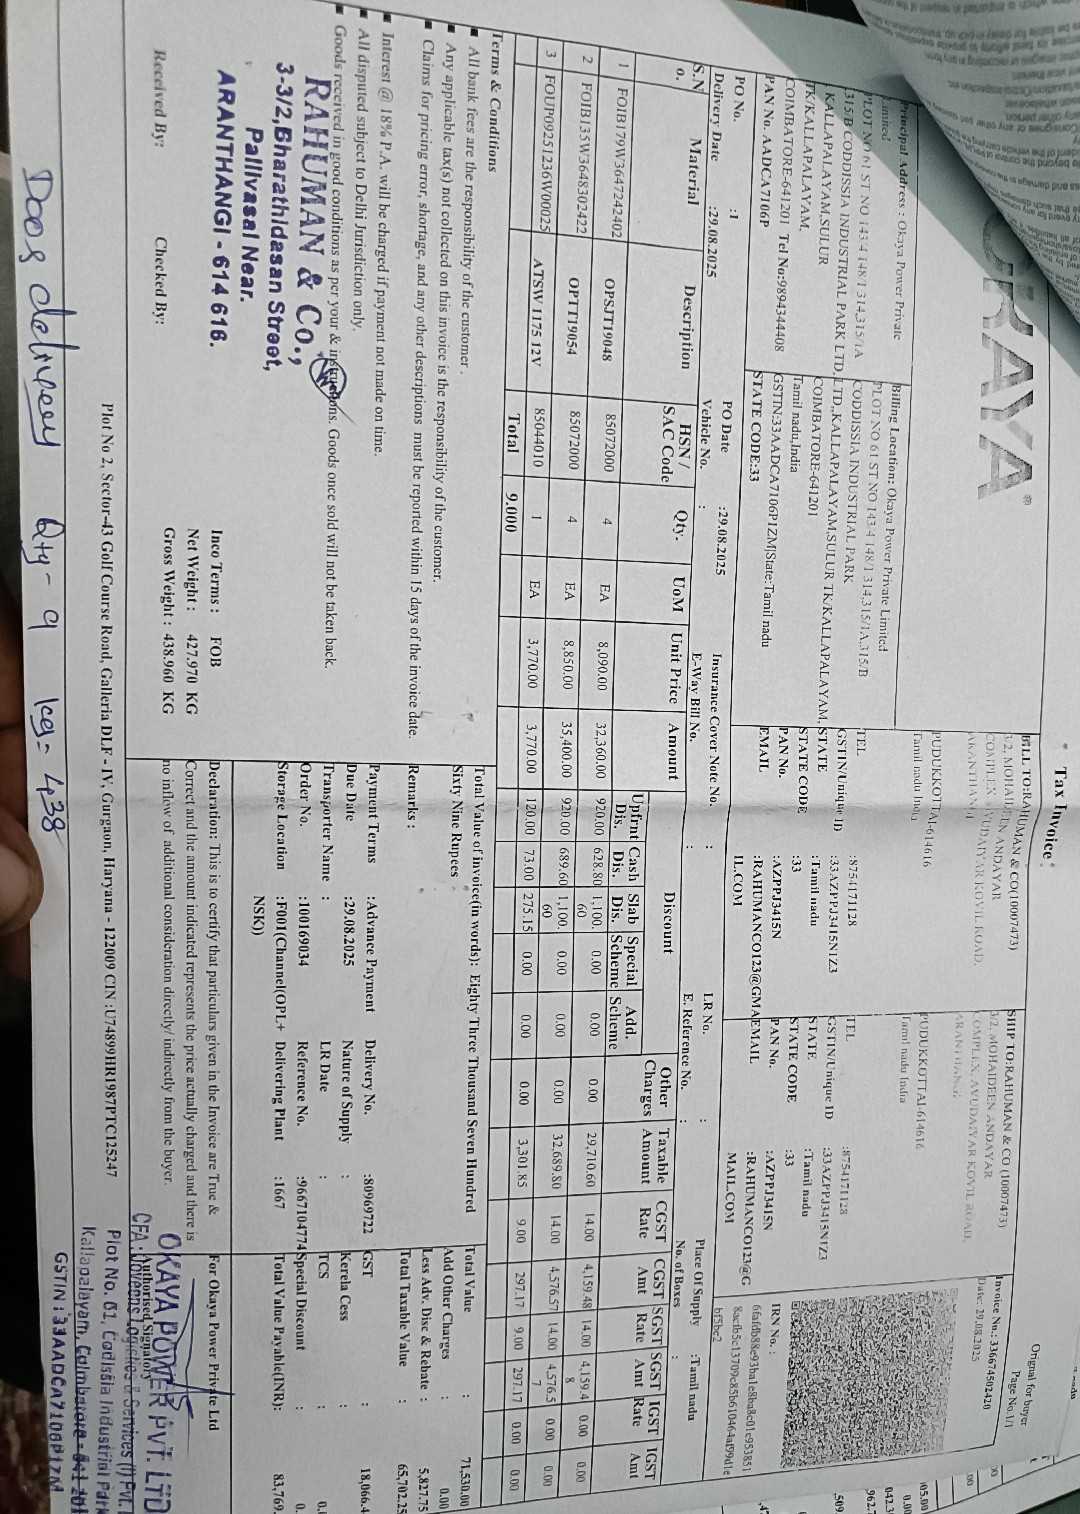 Tax Invoice
Orignal for buyer
Page No.1/1
Invoice No.: 336674502420
Date: 29.08.2025
OKAYA
Principal Address : Okaya Power Private
Limited
PLOT NO 61 ST NO 143 4 148/1 314,315/1A
315/B CODDISSIA INDUSTRIAL PARK LTD,
KALLAPALAYAM,SULUR
TK/KALLAPALAYAM,
COIMBATORE-641201 Tel No:9894344408
PAN No. AADCA7106P
Billing Location: Okaya Power Private Limited
PLOT NO 61 ST NO 143-4 148/1 314,315/1A,315/B
CODDISSIA INDUSTRIAL PARK
LTD.,KALLAPALAYAM,SULUR TK/KALLAPALAYAM,
COIMBATORE-641201
Tamil nadu,India
GSTIN:33AADCA7106P1ZM|State:Tamil nadu
STATE CODE:33
BILL TO:RAHUMAN & CO(10007473)
3/2, MOHAIDEEN ANDAYAR
COMPLEX AVUDAIYAR KOVIL ROAD,
PUDUKKOTTAI-614616
Tamil nadu India
TEL :8754171128
GSTIN/Unique ID :33AZPPJ3415N1Z3
STATE :Tamil nadu
STATE CODE :33
PAN No. :AZPPJ3415N
EMAIL :RAHUMANCO123@GMA
IL.COM
SHIP TO:RAHUMAN & CO (10007473)
3/2, MOHAIDEEN ANDAYAR
COMPLEX, AVUDAIYAR KOVIL ROAD,
PUDUKKOTTAI-614616
Tamil nadu India
TEL :8754171128
GSTIN/Unique ID :33AZPPJ3415N1Z3
STATE :Tamil nadu
STATE CODE :33
PAN No. :AZPPJ3415N
EMAIL :RAHUMANCO123@G
MAIL.COM
IRN No. :
PO No. :1
PO Date :29.08.2025
Insurance Cover Note No. :
LR No. :
Place Of Supply :Tamil nadu
Delivery Date :29.08.2025
Vehicle No. :
E-Way Bill No. :
E. Reference No. :
No. of Boxes :
S.No. Material Description HSN / SAC Code Qty. UoM Unit Price Amount Discount Upfrnt Dis. Cash Dis. Slab Dis. Special Scheme Add. Scheme Other Charges Taxable Amount CGST Rate CGST Amt SGST Rate SGST Amt IGST Rate IGST Amt
1 FOIB179W3647242402 OPSJT19048 85072000 4 EA 8,090.00 32,360.00 920.00 628.80 1,100.60 0.00 0.00 0.00 29,710.60 14.00 4,159.48 14.00 4,159.48 0.00 0.00
2 FOIB135W3648302422 OPTT19054 85072000 4 EA 8,850.00 35,400.00 920.00 689.60 1,100.60 0.00 0.00 0.00 32,689.80 14.00 4,576.57 14.00 4,576.57 0.00 0.00
3 FOUP09251236W00025 ATSW 1175 12V 85044010 1 EA 3,770.00 3,770.00 120.00 73.00 275.15 0.00 0.00 0.00 3,301.85 9.00 297.17 9.00 297.17 0.00 0.00
Total 9.000
Terms & Conditions
All bank fees are the responsibility of the customer .
Any applicable tax(s) not collected on this invoice is the responsibility of the customer.
Claims for pricing error, shortage, and any other descriptions must be reported within 15 days of the invoice date.
Interest @ 18% P.A. will be charged if payment not made on time.
All disputed subject to Delhi Jurisdiction only.
Goods received in good conditions as per your & instructions. Goods once sold will not be taken back.
RAHUMAN & Co.,
3-3/2,Bharathidasan Street,
Pallivasal Near.
ARANTHANGI - 614 616.
Received By:
Checked By:
Inco Terms : FOB
Net Weight : 427.970 KG
Gross Weight : 438.960 KG
Total Value of invoice(in words): Eighty Three Thousand Seven Hundred
Sixty Nine Rupees
Remarks :
Payment Terms :Advance Payment
Delivery No. :80969722
Due Date :29.08.2025
Nature of Supply :
Transporter Name :
LR Date :
Order No. :100169034
Reference No. :9667104774
Storage Location :F001(Channel(OPL+
NSK))
Delivering Plant :1667
Total Value : 71,530.00
Add Other Charges : 0.00
Less Adv. Disc & Rebate : 5,827.75
Total Taxable Value : 65,702.25
GST : 18,066.4
Kerela Cess :
TCS : 0.
Special Discount : 0.
Total Value Payable(INR): 83,769.
Declaration: This is to certify that particulars given in the Invoice are True &
Correct and the amount indicated represents the price actually charged and there is
no inflow of additional consideration directly/ indirectly from the buyer.
For Okaya Power Private Ltd
OKAYA POWER PVT. LTD
Authorised Signatory
Plot No. 61, Codissia Industrial Park
Kallapalayam, Coimbatore - 641 201
GSTIN : 33AADCA7106P1ZM
Plot No 2, Sector-43 Golf Course Road, Galleria DLF - IV, Gurgaon, Haryana - 122009 CIN :U74899HR1987PTC125247
Door delivery Qty - 9 kg = 438